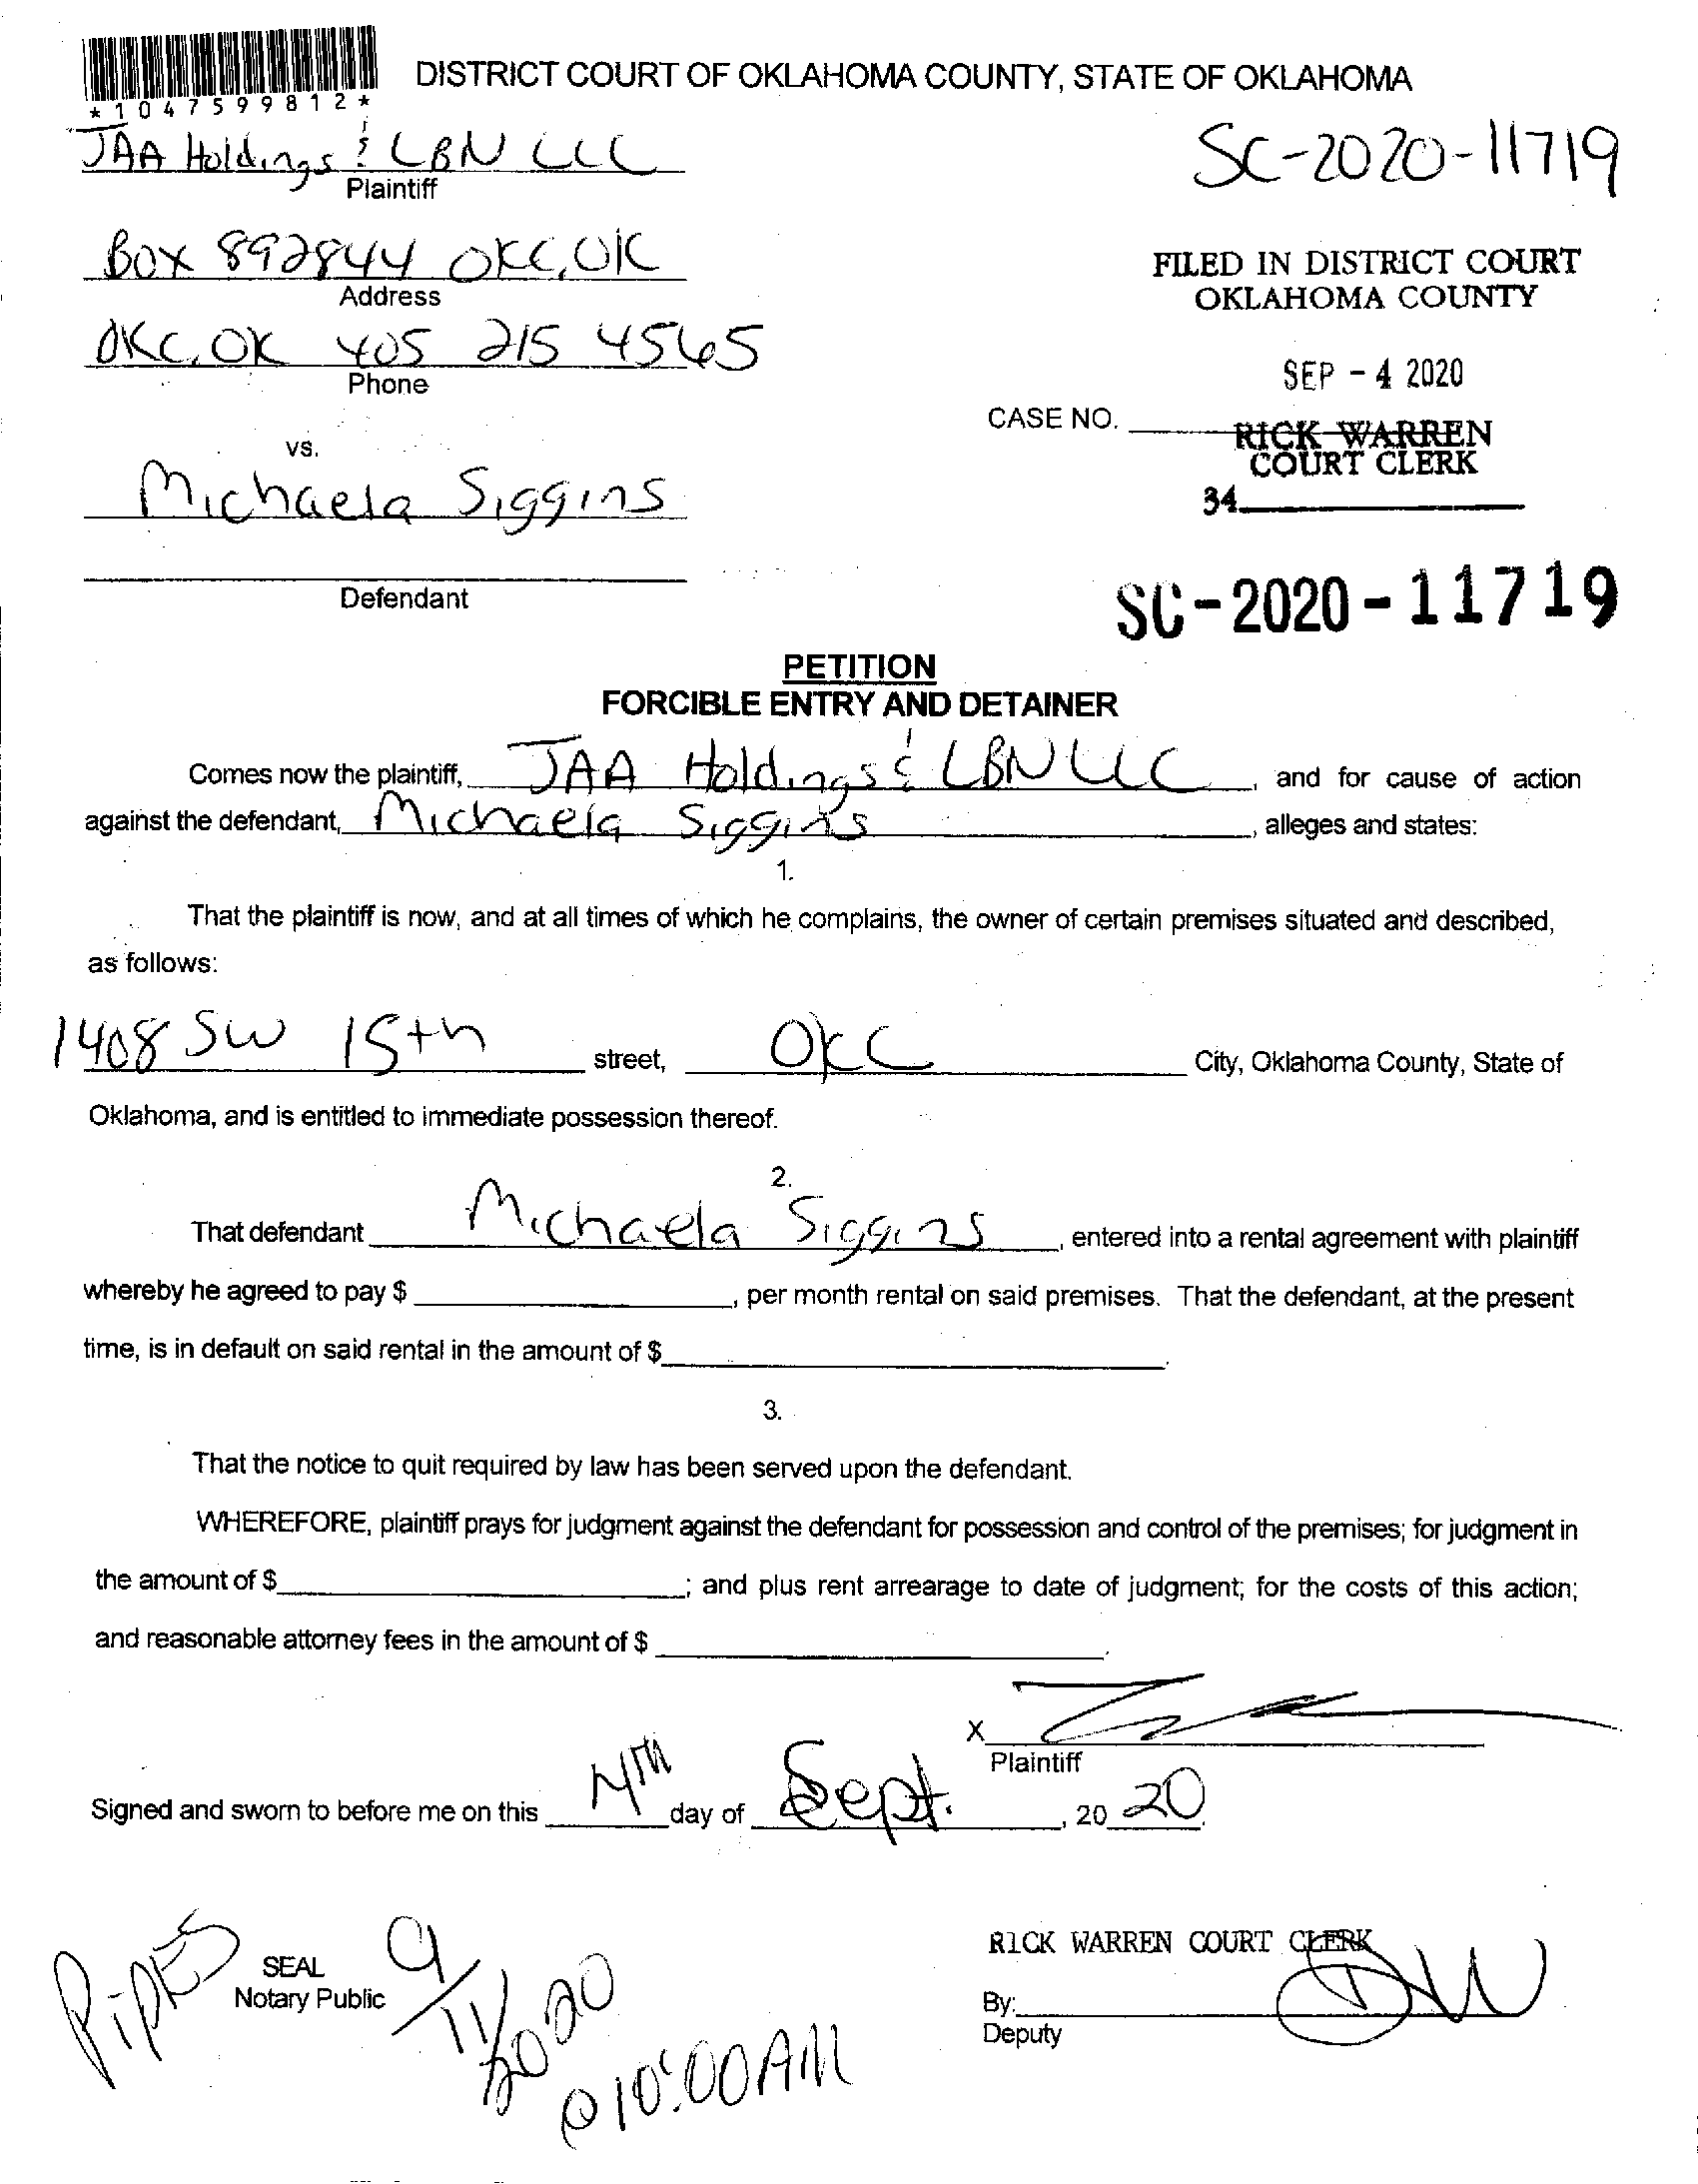 *1047599812*
DISTRICT COURT OF OKLAHOMA COUNTY, STATE OF OKLAHOMA
JAA Holdings & LBN LLC
Plaintiff
SC-2020-11719
Box 892844 OKC, OK
Address
FILED IN DISTRICT COURT
OKLAHOMA COUNTY
OKC, OK 405 215 4565
Phone
SEP - 4 2020
CASE NO.
RICK WARREN
COURT CLERK
34
vs.
Michaela Siggins
Defendant
SC-2020-11719
PETITION
FORCIBLE ENTRY AND DETAINER
Comes now the plaintiff, JAA Holdings & LBN LLC, and for cause of action
against the defendant, Michaela Siggins, alleges and states:
1.
That the plaintiff is now, and at all times of which he complains, the owner of certain premises situated and described,
as follows:
1408 SW 15th street, OKC City, Oklahoma County, State of
Oklahoma, and is entitled to immediate possession thereof.
2.
That defendant Michaela Siggins, entered into a rental agreement with plaintiff
whereby he agreed to pay $, per month rental on said premises. That the defendant, at the present
time, is in default on said rental in the amount of $.
3.
That the notice to quit required by law has been served upon the defendant.
WHEREFORE, plaintiff prays for judgment against the defendant for possession and control of the premises; for judgment in
the amount of $; and plus rent arrearage to date of judgment; for the costs of this action;
and reasonable attorney fees in the amount of $.
X
Plaintiff
Signed and sworn to before me on this 4TH day of Sept., 2020.
PIPKES
SEAL
Notary Public
9/11/2020
@ 10:00AM
RICK WARREN COURT CLERK
By: DW
Deputy